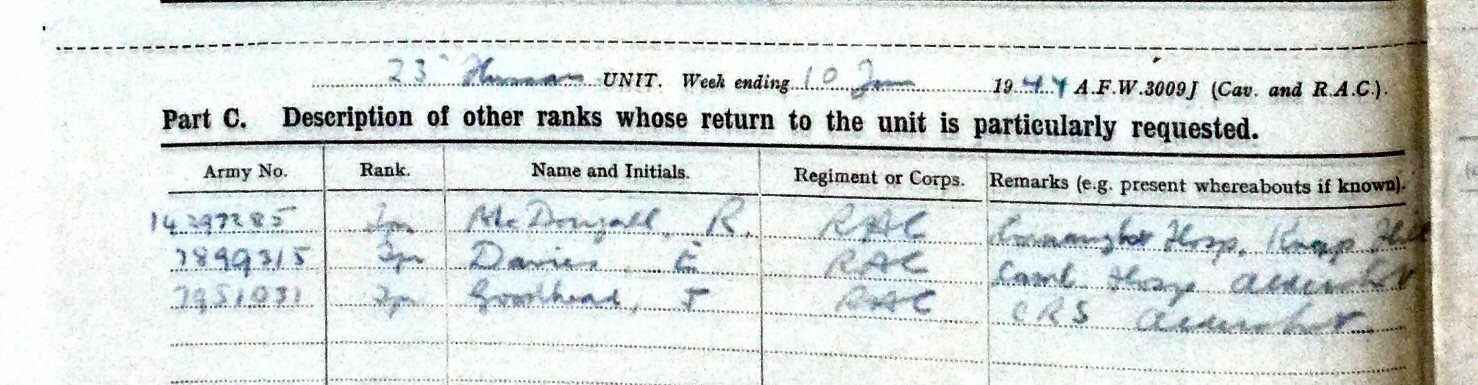 23 Hussars UNIT. Week ending 10 Jun 1944 A.F.W.3009J (Cav. and R.A.C.).
Part C. Description of other ranks whose return to the unit is particularly requested.
Army No. Rank. Name and Initials. Regiment or Corps. Remarks (e.g. present whereabouts if known).
14297285 Tpr McDougall, R. RAC Connaught Hosp, Knap Hill
7899315 Tpr Davies, E RAC Camb. Hosp Aldershot
7951031 Tpr Goodhead, J RAC CRS Aldershot